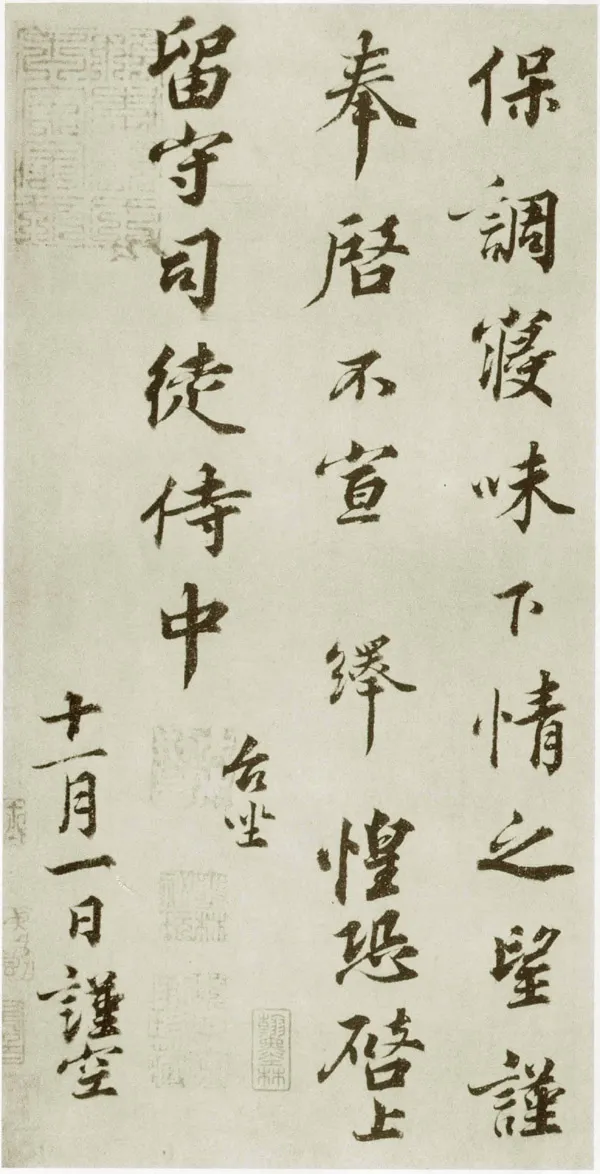 保調寢味下情之望謹
奉啓不宣 繹惶恐啓上
留守司徒侍中
台坐
十一月一日謹空